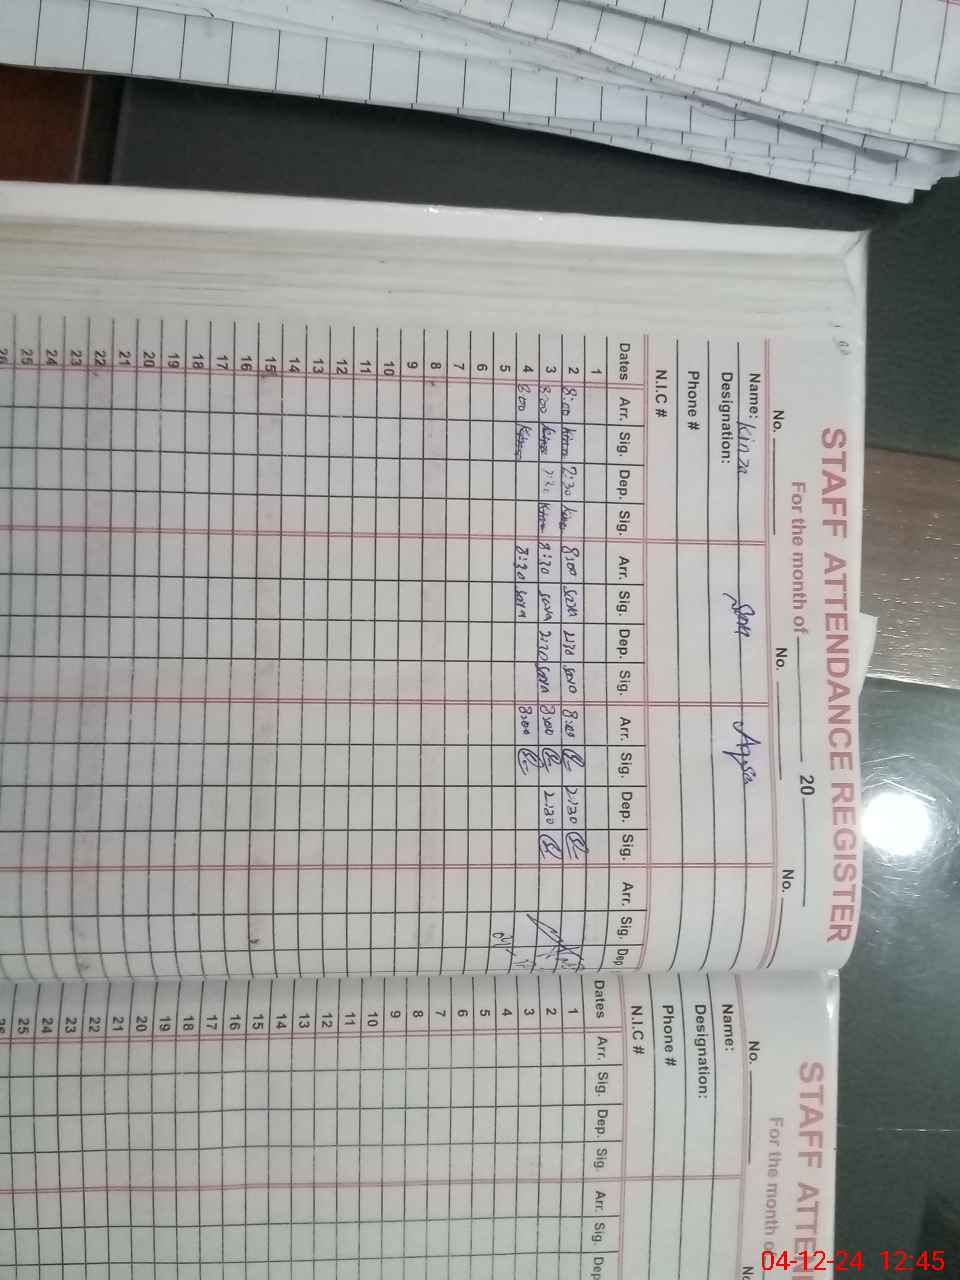 STAFF ATTENDANCE REGISTER
For the month of 20
No. No. No.
Name: Kinza Sara Aqsa
Designation:
Phone #
N.I.C #
Dates Arr. Sig. Dep. Sig. Arr. Sig. Dep. Sig. Arr. Sig. Dep. Sig. Arr. Sig. Dep
1
2 8:00 Kinza 2:30 Kinza 8:00 sara 2:30 sara 8:00 2:30
3 8:00 Kinza 2:30 Kinza 8:30 sara 2:30 sara 8:00 2:30
4 8:00 Kinza 8:30 sara 8:00
5
6
7
8
9
10
11
12
13
14
15
16
17
18
19
20
21
22
23
24
25
26
STAFF ATTEN
For the month o
No. No
Name:
Designation:
Phone #
N.I.C #
Dates Arr. Sig. Dep. Sig. Arr. Sig. Dep
1
2
3
4
5
6
7
8
9
10
11
12
13
14
15
16
17
18
19
20
21
22
23
24
25
26
04-12-24 12:45